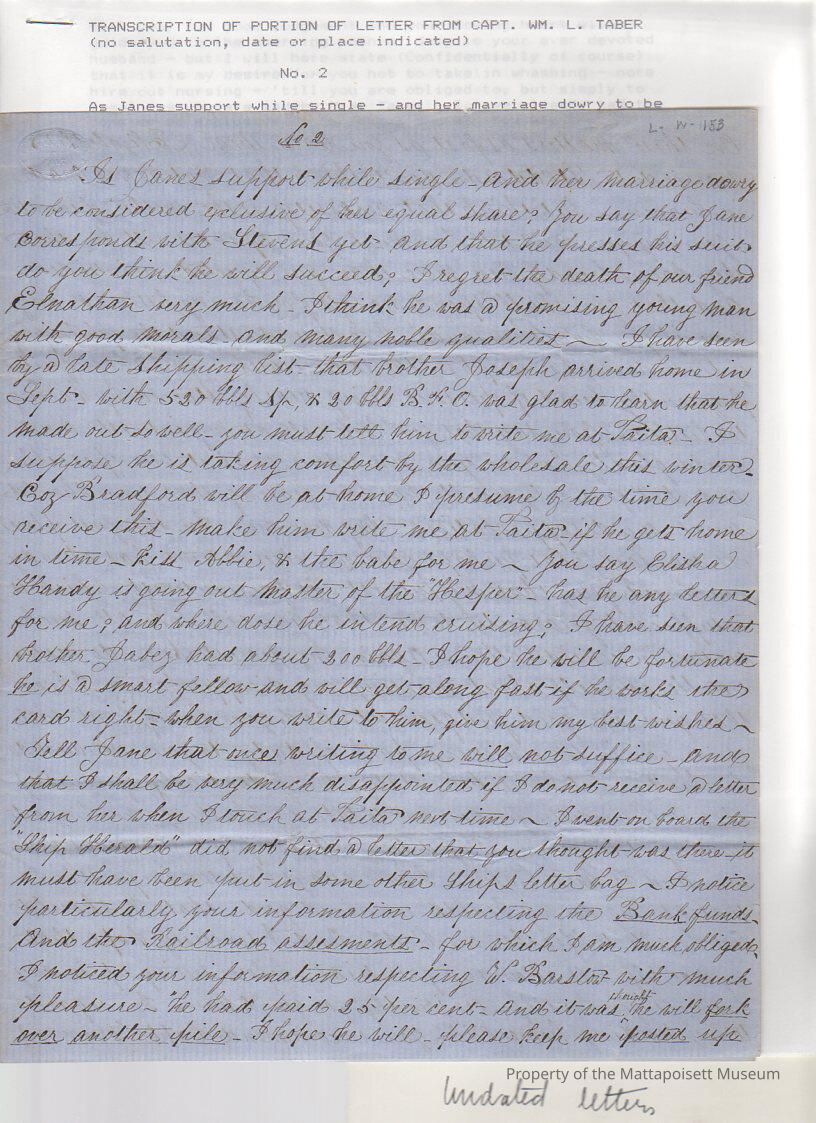 TRANSCRIPTION OF PORTION OF LETTER FROM CAPT. WM. L. TABER
(no salutation, date or place indicated)
No. 2
As Janes support while single - and her marriage dowry to be
L- W-1153
No 2
As Janes support while single - and her marriage dowry
to be considered exclusive of her equal share? You say that Jane
corresponds with Stevens yet - and that he presses his suit -
do you think he will succeed? I regret the death of our friend
Elnathan very much - I think he was a promising young man
with good morals and many noble qualities ~ I have seen
by a late shipping list that brother Joseph arrived home in
Sept - with 520 bbls Sp, & 20 bbls B.F.O. was glad to learn that he
made out so well - you must tell him to write me at Paita - I
suppose he is taking comfort by the wholesale this winter -
Coz Bradford will be at home I presume by the time you
receive this - make him write me at Paita - if he gets home
in time - Kiss Abbie, & the babe for me ~ You say Elisha
Handy is going out Master of the "Hesper" - has he any letters
for me? and where dose he intend cruising? I have seen that
brother Jabez had about 200 bbls - I hope he will be fortunate
he is a smart fellow and will get along fast if he works the
card right - when you write to him, give him my best wishes ~
Tell Jane that once writing to me will not suffice - and
that I shall be very much disappointed if I do not receive a letter
from her when I touch at Paita next time ~ I went on board the
"Ship Herald" did not find a letter that you thought was there it
must have been put in some other Ships letter bag ~ I notice
particularly your information respecting the Bank funds -
And the Railroad assesments - for which I am much obliged,
I noticed your information respecting W. Barslow with much
pleasure - "he had paid 25 per cent - and it was thought he will fork
over another pile - I hope he will - please keep me "posted up
Property of the Mattapoisett Museum
Undated letters